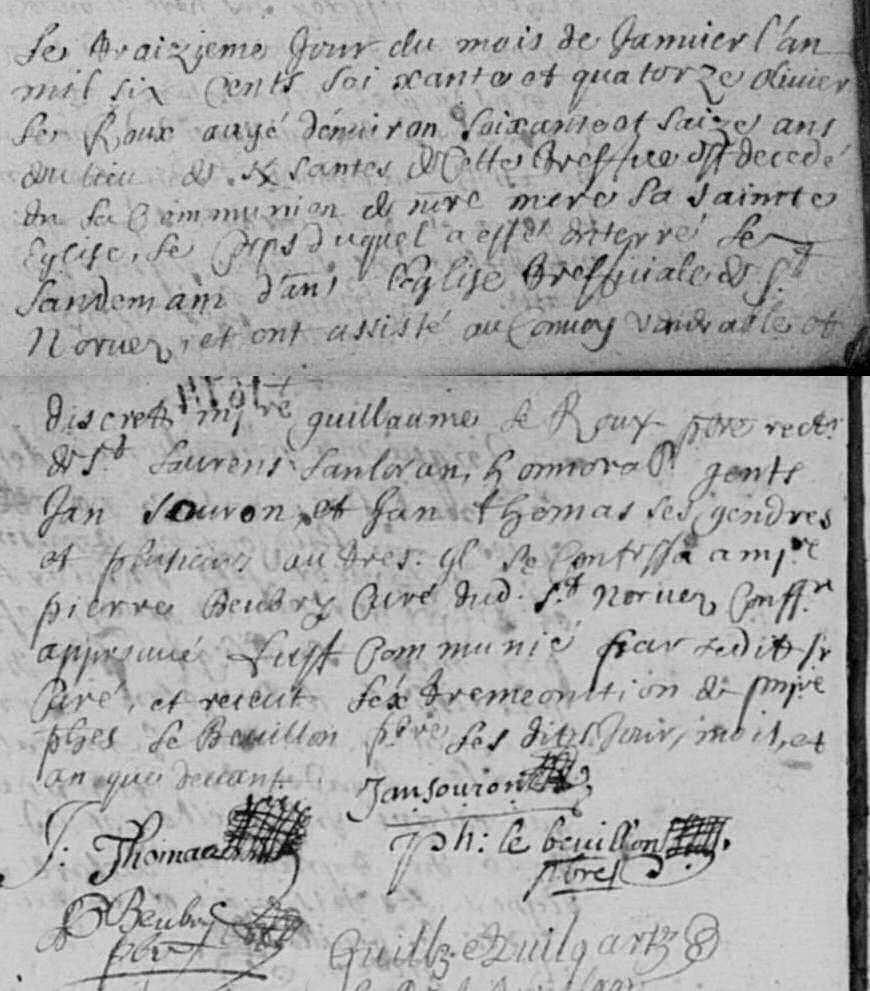 Le traizieme Jour du mois de Januier l'an
mil six Cents soixante et quatorze oliuier
Le Roux augé d'enuiron soixante et saize ans
du lieu de santes de Cette treffue est decedé
en la Communion de nre mere la saincte
Eglise, le Corps duquel a esté enterré le
landemain dans l'eglise treffuiale de St
Noruez, et ont assisté au Conuoy venerable et
discret guillaume le Roux pbre rectr
de St Laurens Lanloran, honnorabl gents
Jan souron et Jan thomas ses gendres
et plusieurs autres. Il se Confessa a
pierre Beubry Curé dud. St Noruez Conffr
approuué fust Communié par ledit sr
Curé, et receut l'extreme onction de
phes le Beuillon pbre les dits Jour, mois, et
an que deuant
Jan souron
J: Thomas
ph: le beuillon
pbre
P Beubry
pbre